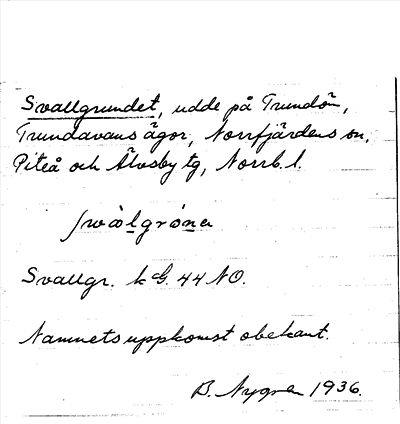 Svallgrundet, udde på Trundön,
Trundavans ägor, Norrfjärdens sn,
Piteå och Älvsby tg, Norrb. l.
ʃwòlgróna
Svallgr. k G. 44 NO.
Namnets uppkomst obekant.
B. Nygren 1936.